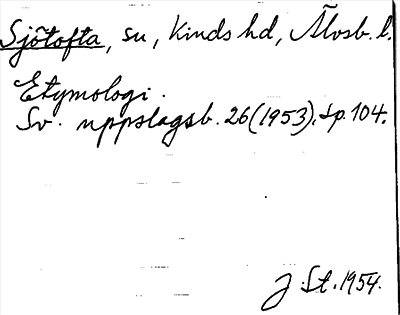 Sjötofta, sn, Kinds hd, Älvsb. l.
Etymologi.
Sv. uppslagsb. 26 (1953), sp. 104.
J. St. 1954.